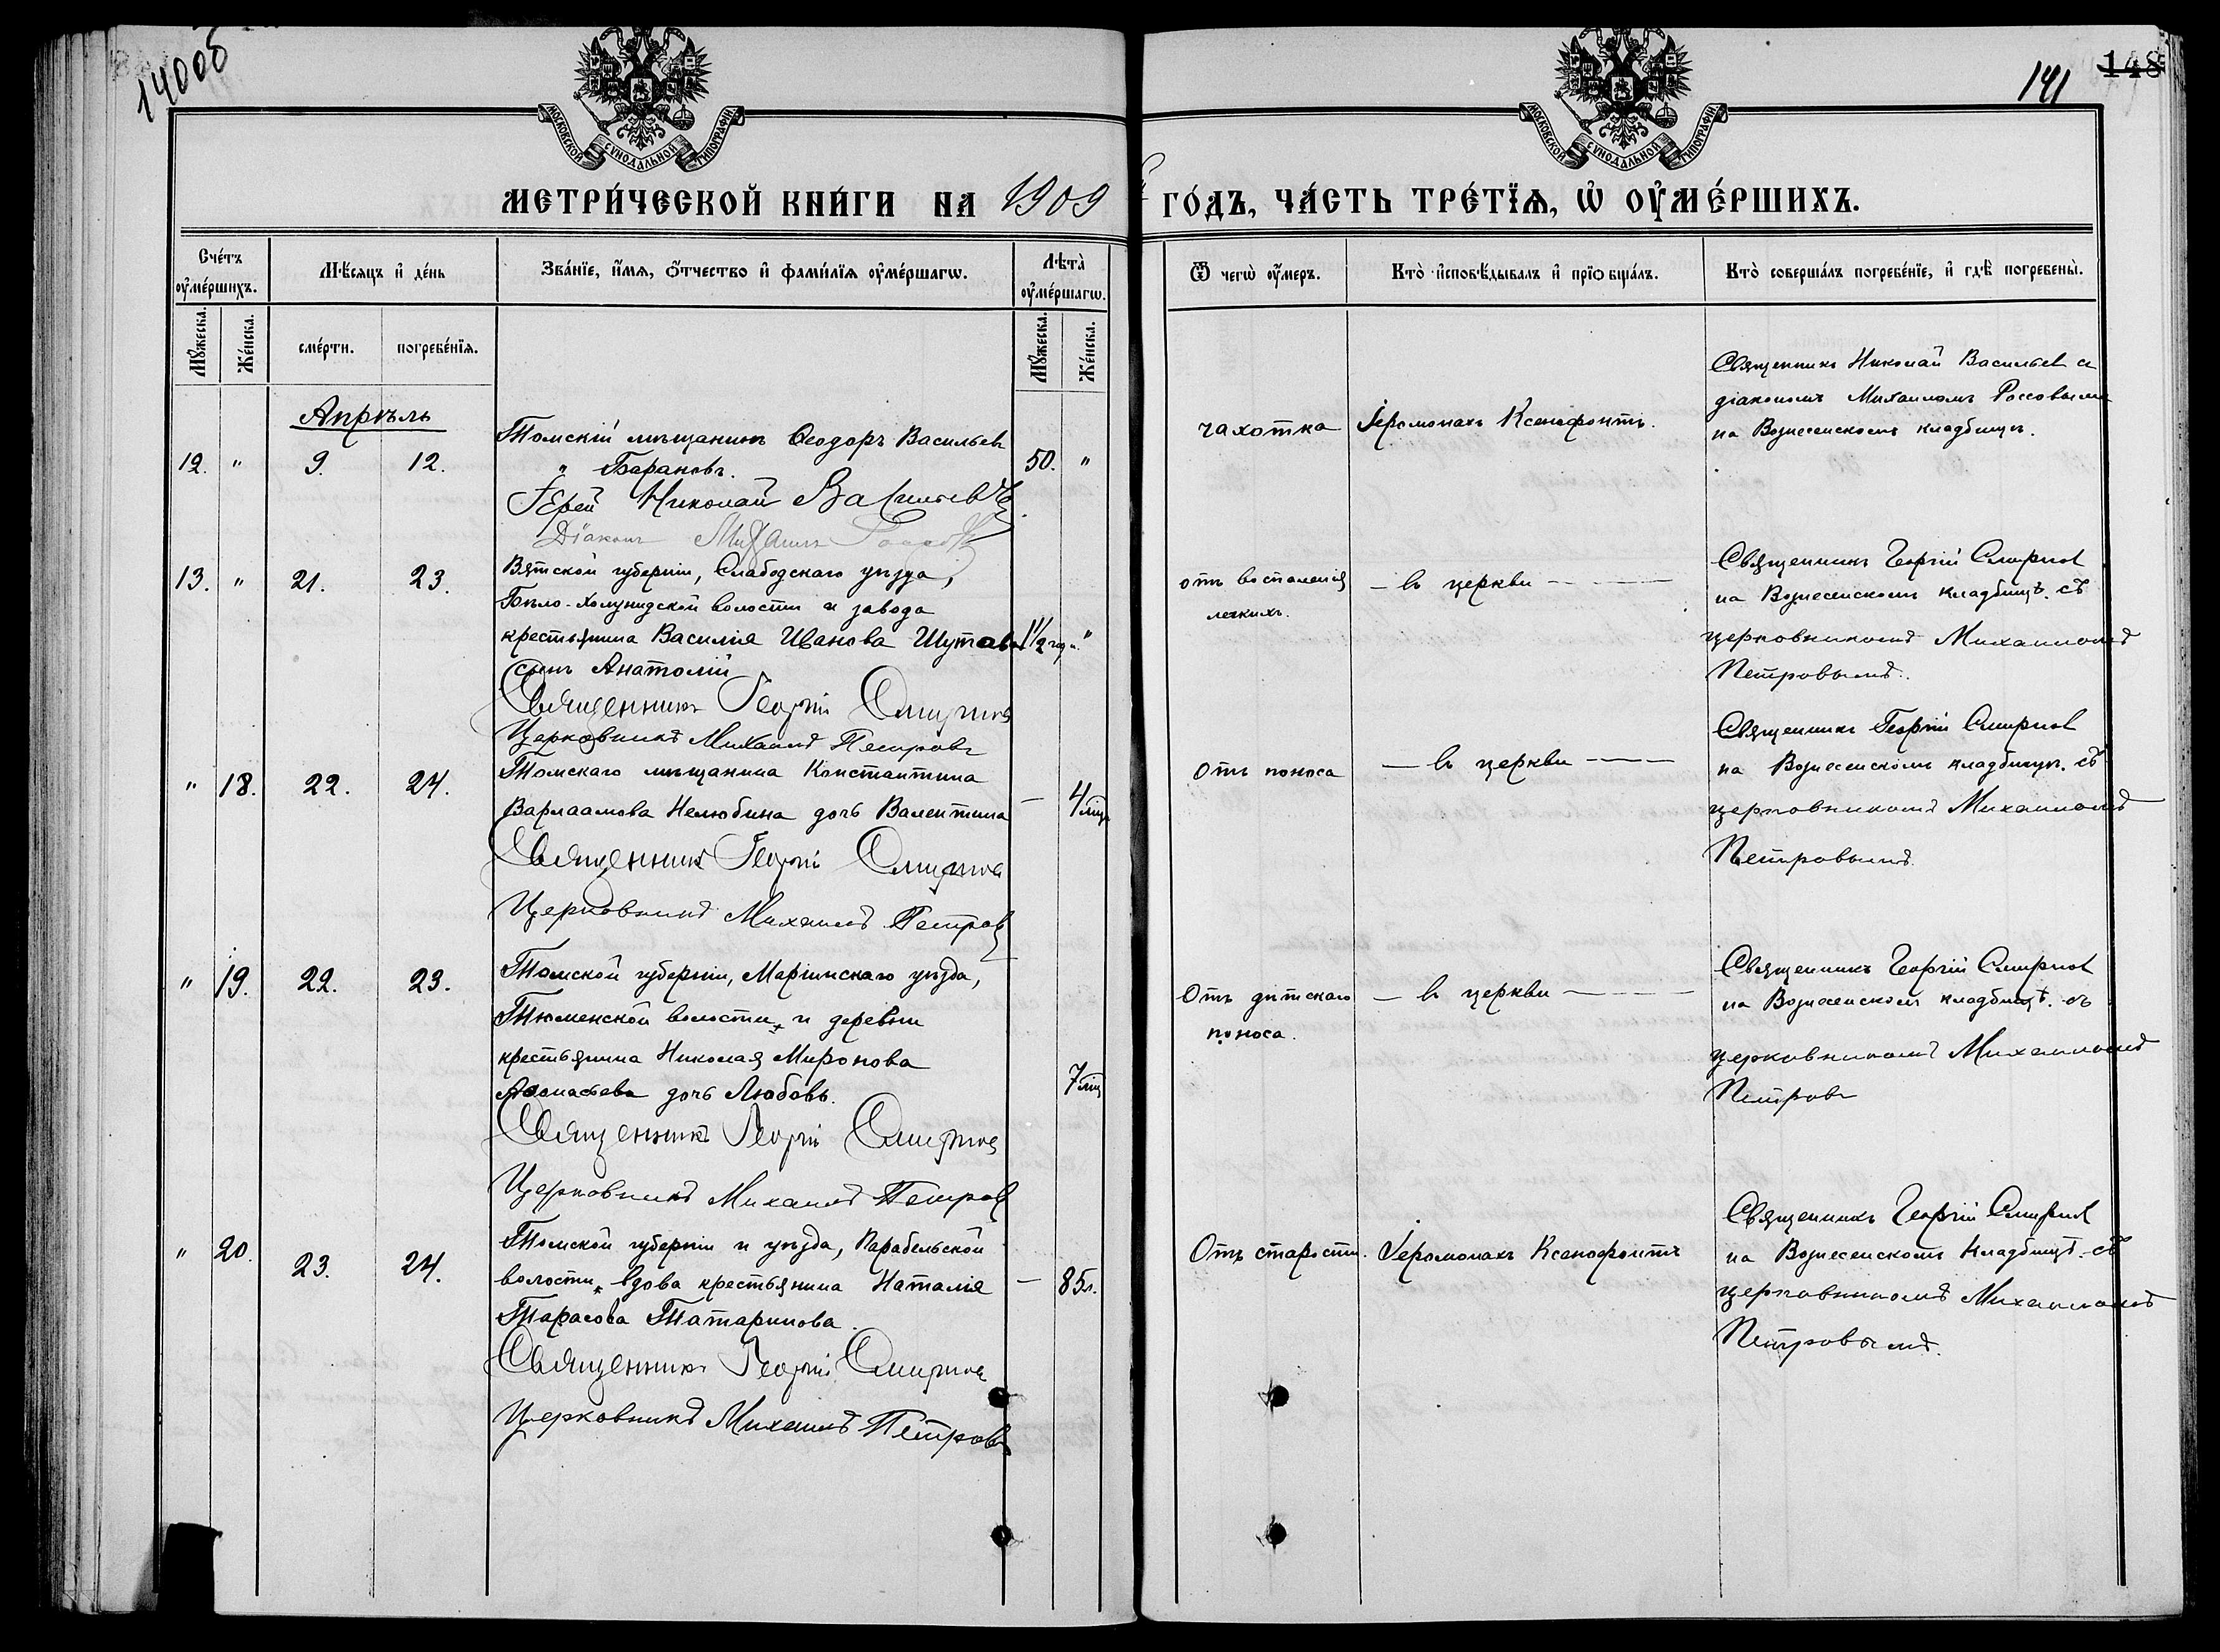 140об
141 148
МОСКОВСКОЙ СУНОДАЛЬНОЙ ТИПОГРАФІИ.
МОСКОВСКОЙ СУНОДАЛЬНОЙ ТИПОГРАФІИ.
МЕТРИ́ЧЕСКОЙ КНИ́ГИ НА 1909 ГО́ДЪ, ЧА́СТЬ ТРЕ́ТЇѦ, Ѡ҆ ОУ҆МЕ́РШИХЪ.
Сче́тъ оу҆ме́ршихъ.
Мѣ́сяцъ и҆ де́нь
Зва́нїе, и҆́мѧ, ѻ҆́тчество и҆ фами́лїѧ оу҆ме́ршагѡ.
Лѣта̀ оу҆ме́ршагѡ.
Ѿ чегѡ̀ оу҆́меръ.
Кто̀ и҆сповѣ́дывалъ и҆ прїѻбща́лъ.
Кто̀ соверша́лъ погребе́нїе, и҆ гдѣ̀ погребены̀.
Мꙋ́жеска.
Же́нска.
сме́рти.
погребе́нїѧ.
Мꙋ́жеска.
Же́нска.
Апрѣль
12. " 9. 12.
Томскій мѣщанинъ Ѳеодоръ Васильев
" Барановъ.
50. "
Іерей Николай Васильевъ
Діаконъ Михаилъ Россовъ
чахотка
Іеромонахъ Ксенофонтъ.
Священникъ Николай Васильев съ
діакономъ Михаиломъ Россовымъ
на Вознесенскомъ кладбищѣ.
13. " 21. 23.
Вятской губерніи, Слабодскаго уѣзда,
Бѣло-Холуницкой волости и завода
крестьянина Василія Иванова Шутова
сынъ Анатолій
1 1/2 год. "
Священникъ Георгій Смирнов
Церковникъ Михаилъ Петровъ
отъ воспаленія
легкихъ.
— въ церкви —
Священникъ Георгій Смирнов
на Вознесенскомъ кладбищѣ. съ
церковникомъ Михаиломъ
Петровымъ.
" 18. 22. 24.
Томскаго мѣщанина Константина
Варлаамова Нелюбина дочь Валентина
— 4 мѣц
Священникъ Георгій Смирнов
Церковникъ Михаилъ Петров
Отъ поноса
— въ церкви —
Священникъ Георгій Смирнов
на Вознесенскомъ кладбищѣ. съ
церковникомъ Михаиломъ
Петровымъ.
" 19. 22. 23.
Томской губерніи, Маріинскаго уѣзда,
Тюменской волости, и деревни
крестьянина Николая Миронова
Аѳонасьева дочь Любовь.
7 мѣц
Священникъ Георгій Смирнов
Церковникъ Михаилъ Петров
Отъ дѣтскаго
поноса.
— въ церкви —
Священникъ Георгій Смирнов
на Вознесенском кладбищѣ. съ
церковникомъ Михаиломъ
Петровъ
" 20. 23. 24.
Томской губерніи и уѣзда, Парабельской
волости, вдова крестьянина Наталія
Тарасова Татаринова.
— 85 л.
Священникъ Георгій Смирнов
Церковникъ Михаилъ Петровъ
Отъ старости.
Іеромонахъ Ксенофонтъ
Священникъ Георгій Смирнов
на Вознесенскомъ кладбищѣ. съ
церковникомъ Михаиломъ
Петровымъ.